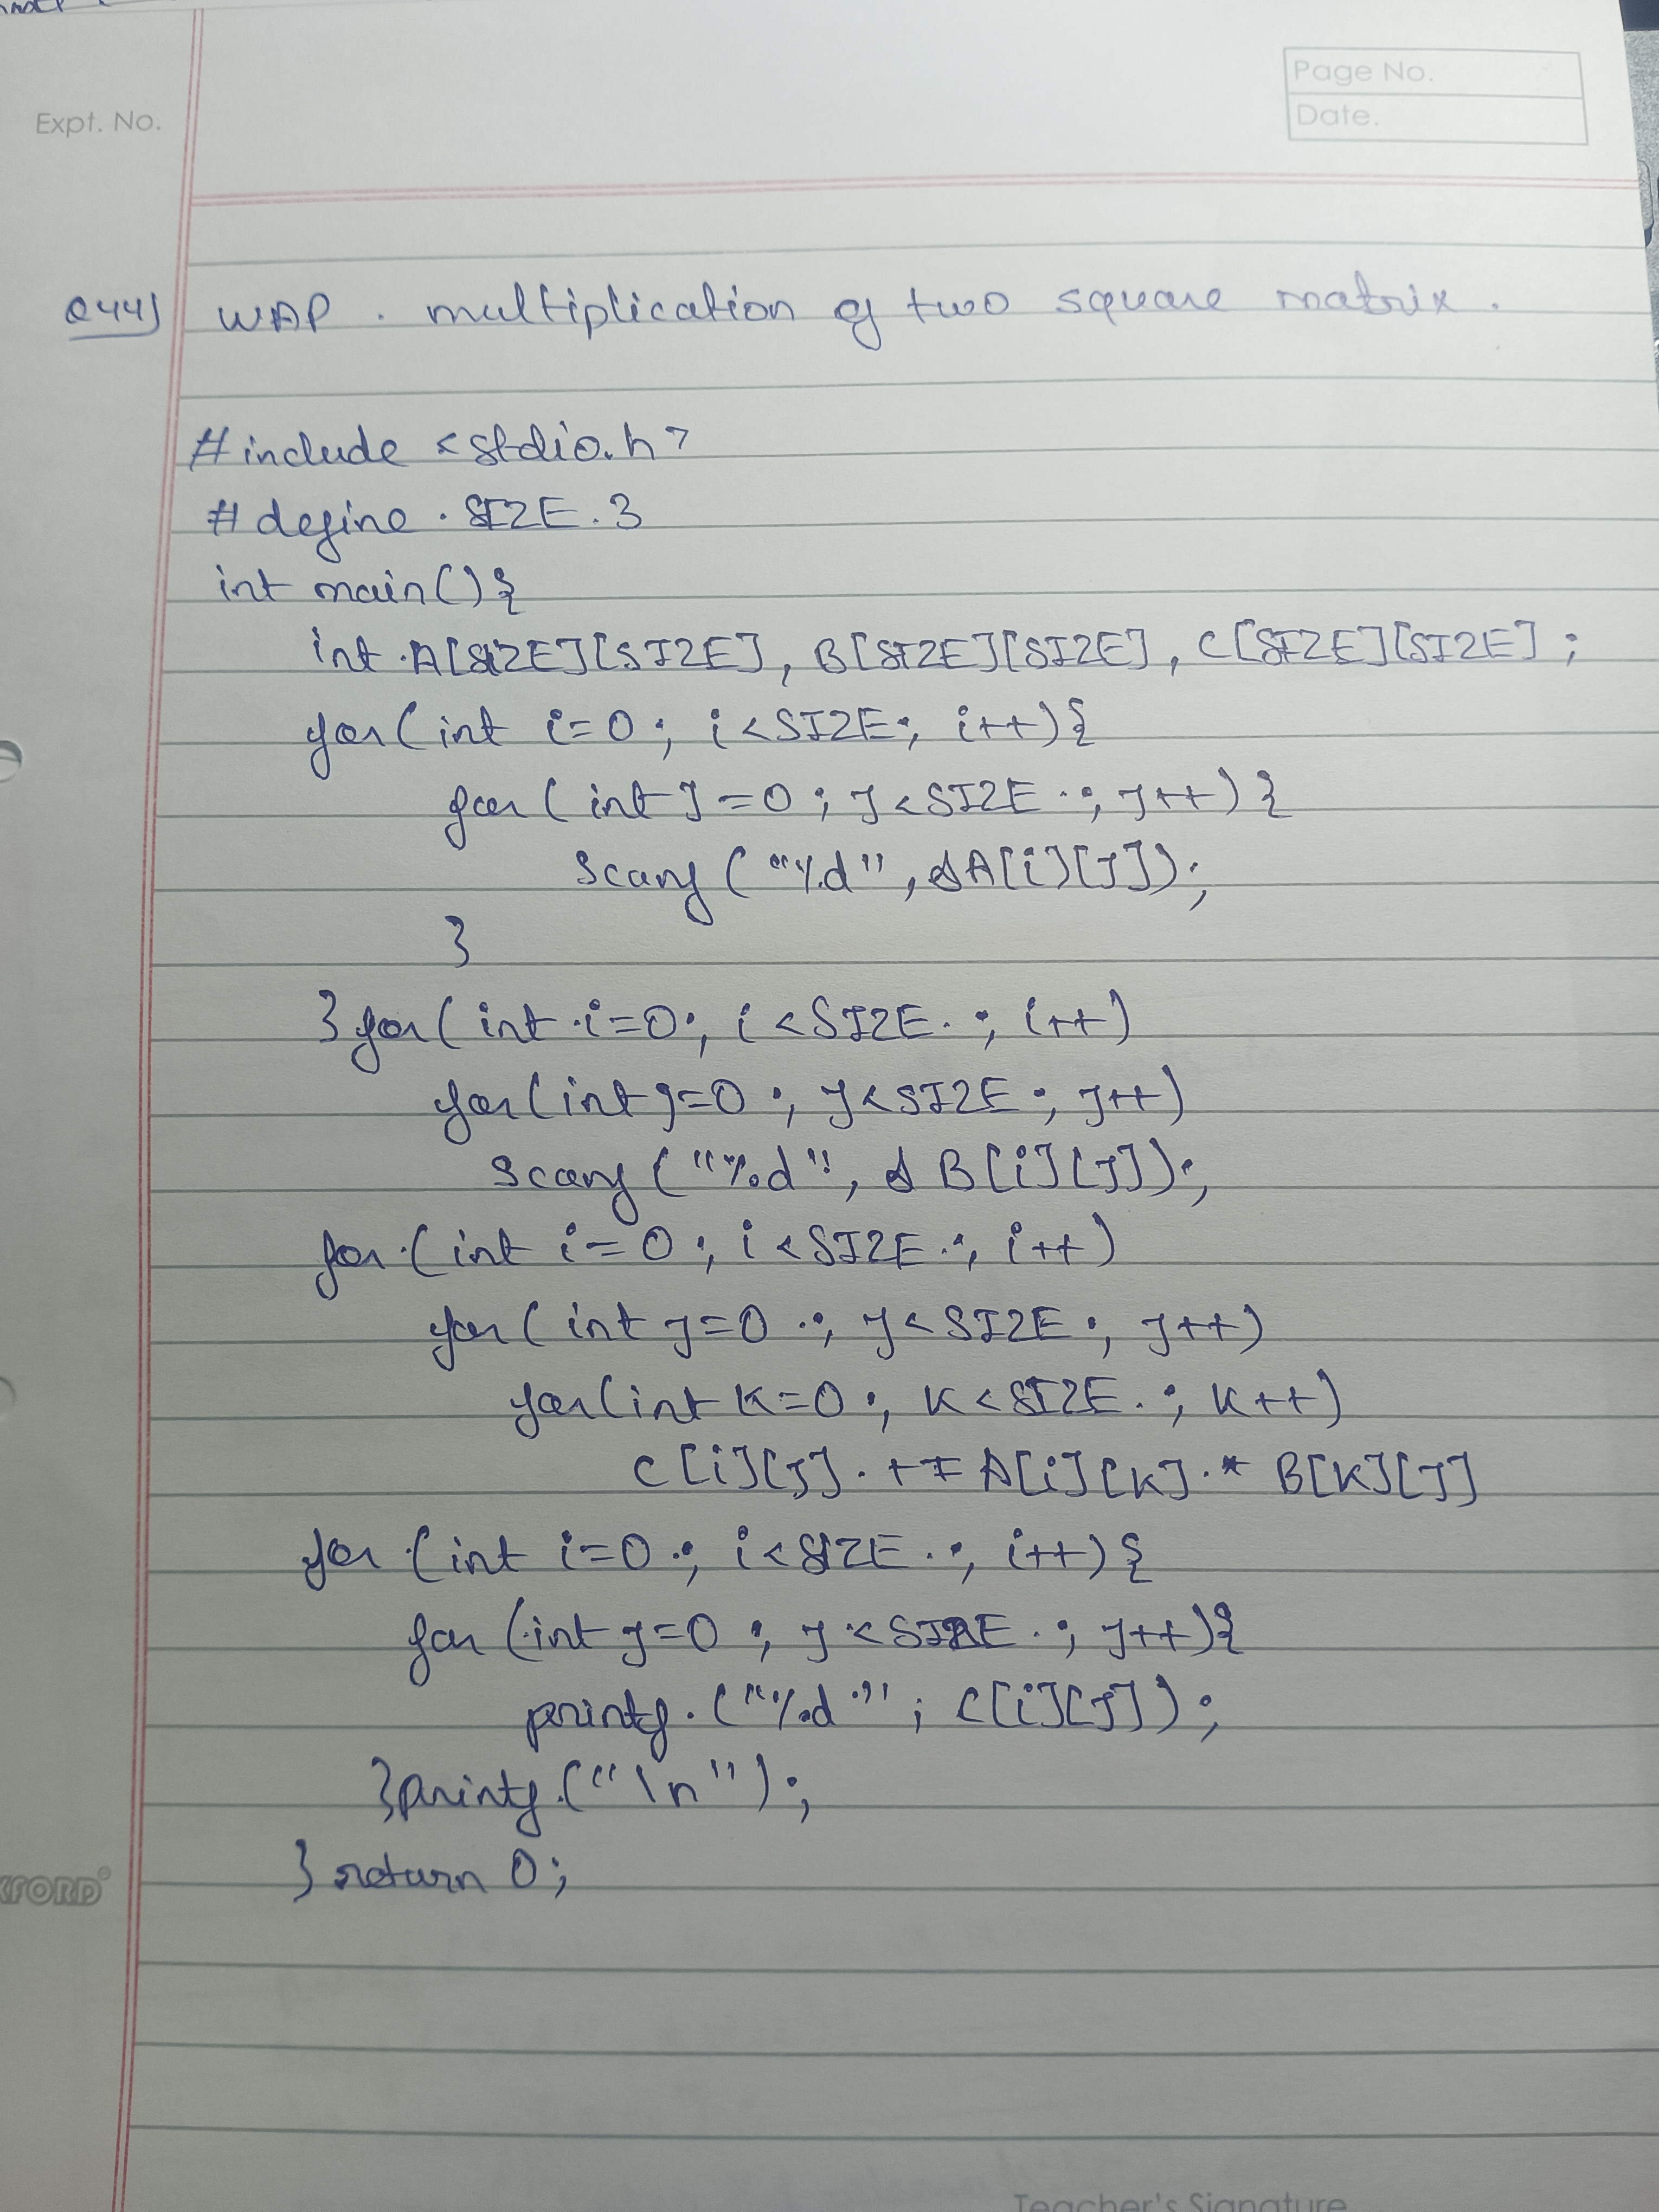 Page No.
Date.
Expt. No.
Q44) WAP . multiplication of two square matrix .
#include <stdio.h>
#define . SIZE . 3
int main(){
int .A[SIZE][SIZE], B[SIZE][SIZE], C[SIZE][SIZE];
for(int i=0; i<SIZE; i++){
for(int J=0; J<SIZE .; J++){
Scanf("%d", &A[i][J]);
}
}for(int .i=0; i<SIZE. ; i++)
for(int J=0; J<SIZE; J++)
Scanf("%d", & B[i][J]);
for.(int i=0; i<SIZE.; i++)
for(int J=0 .; J<SIZE; J++)
for(int K=0; K<SIZE. ; K++)
C[i][J]. += A[i][K].* B[K][J]
for.(int i=0.; i<SIZE..; i++){
for(.int J=0; J<SIZE .; J++){
printf.("%d ."; C[i][J]);
}printf.("\n");
}return 0;
XFORD
Teacher's Signature